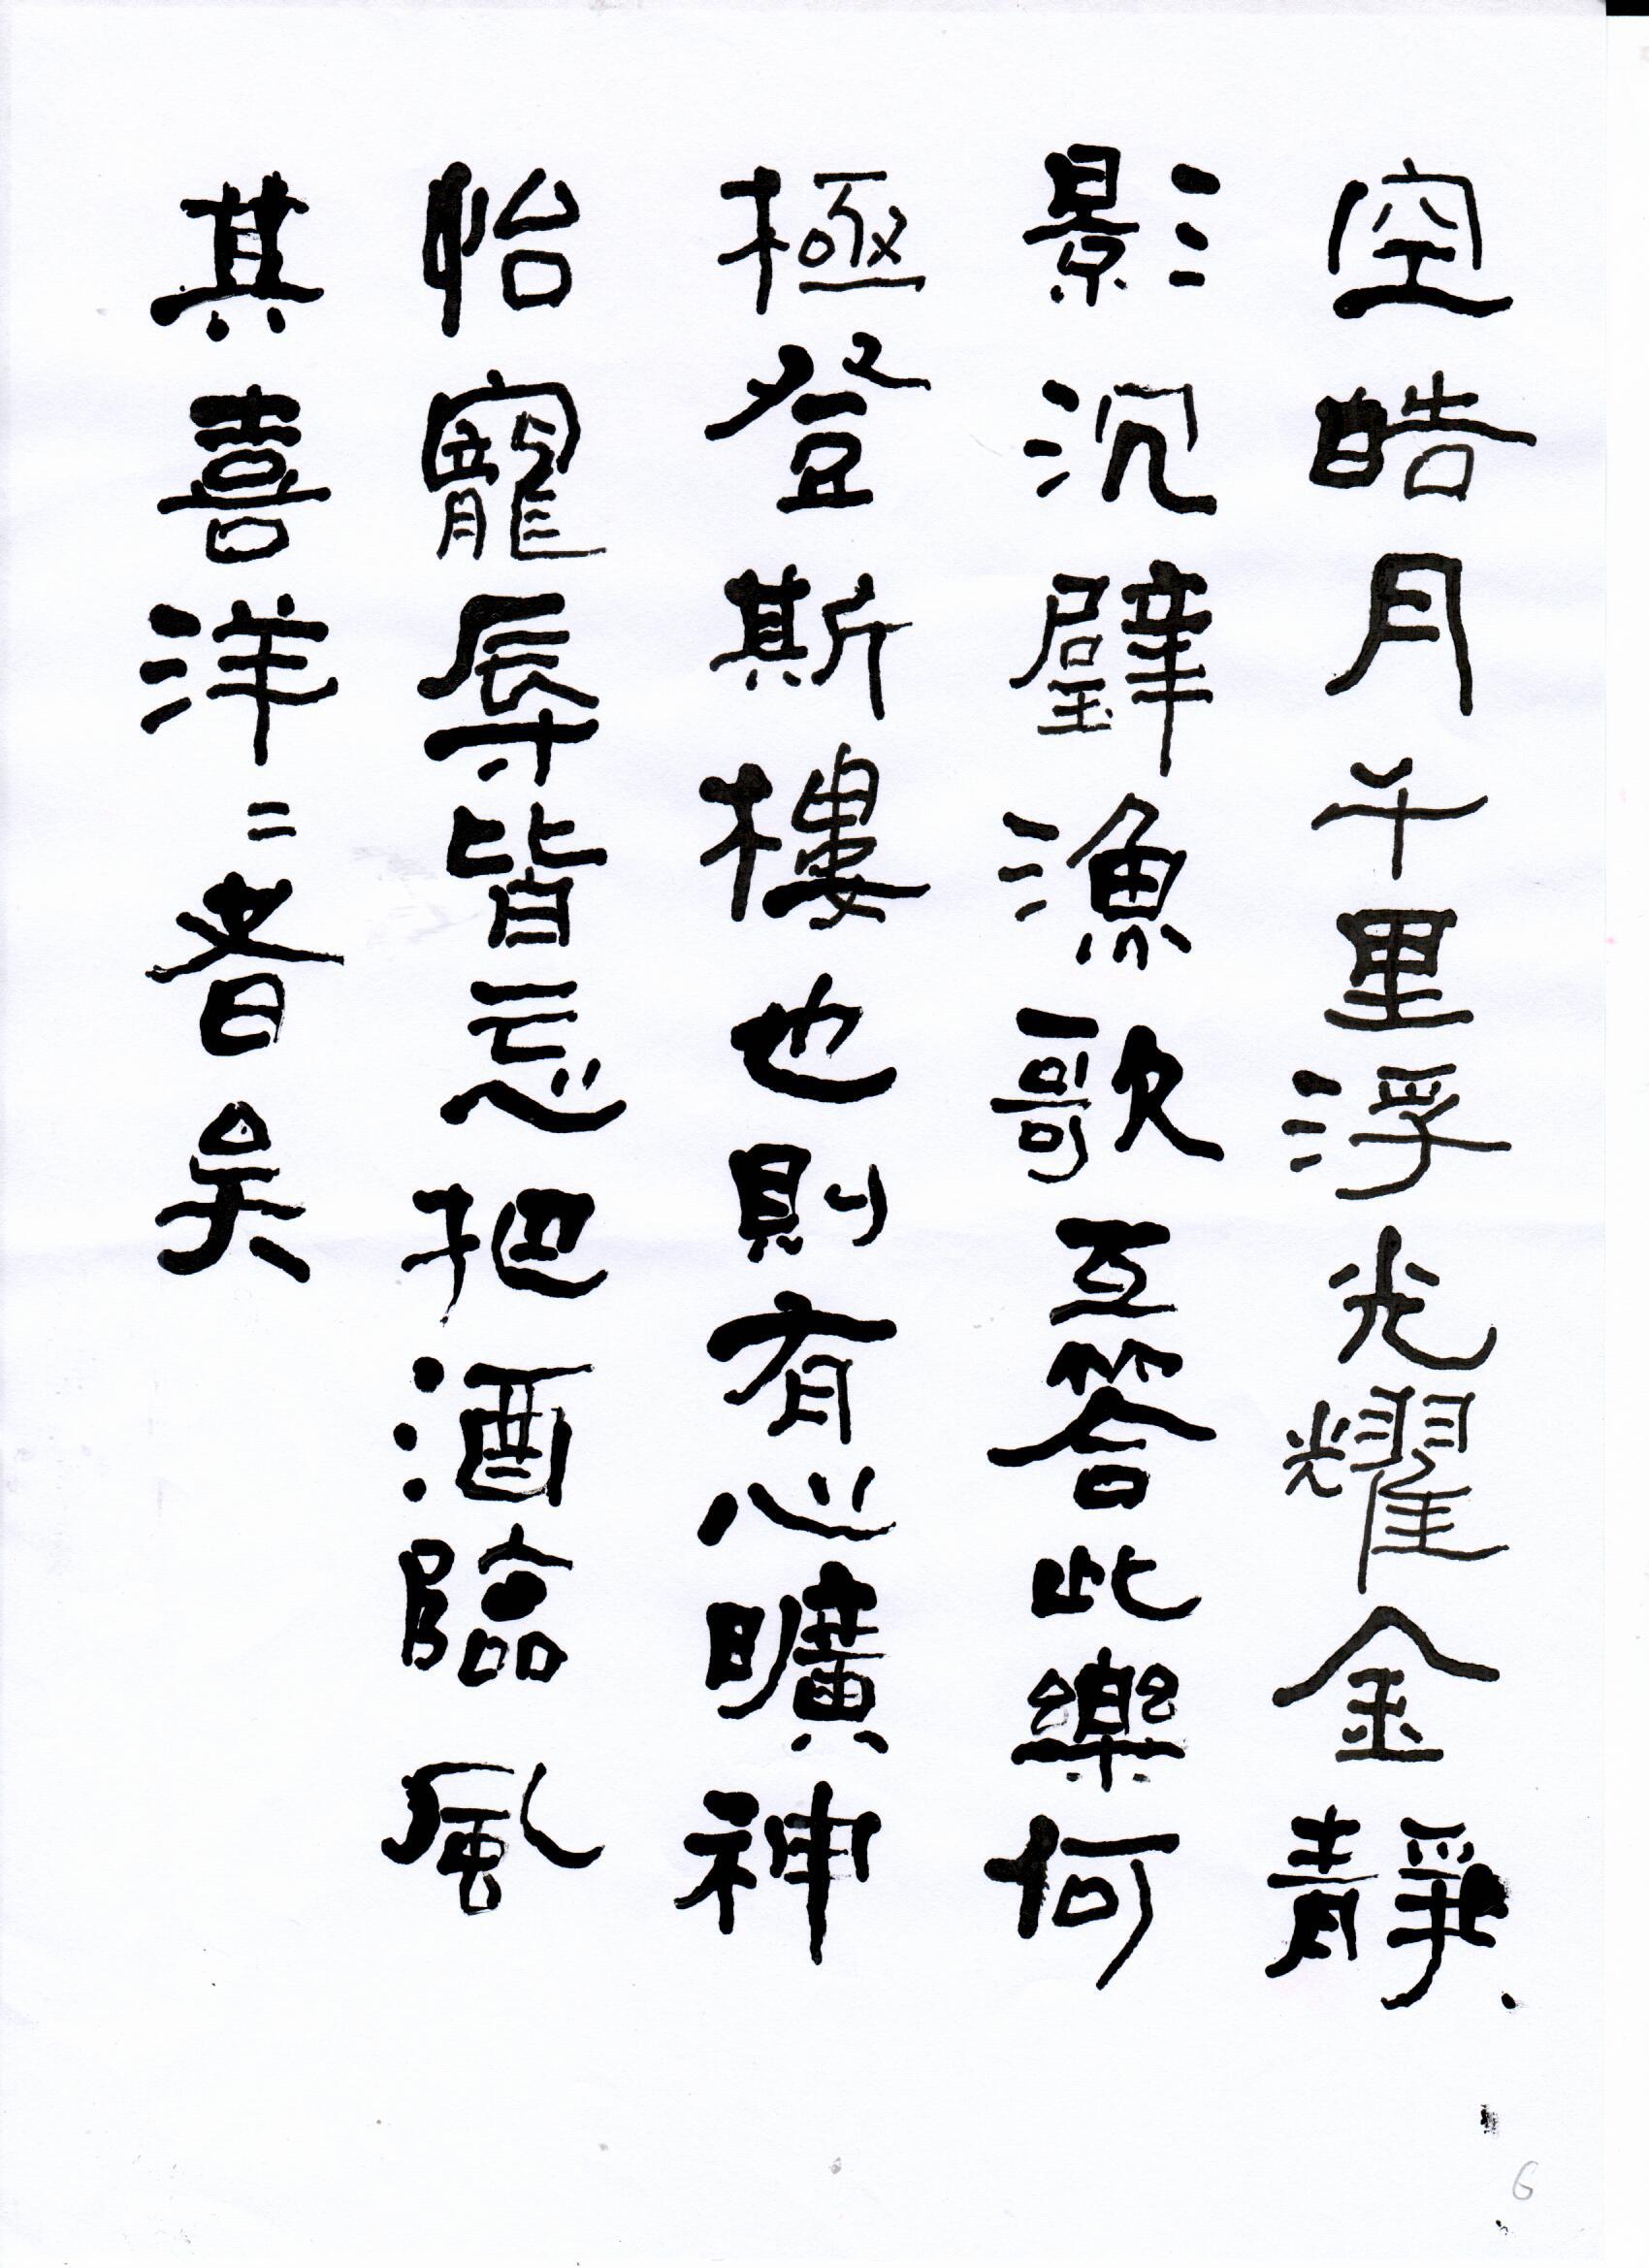 空皓月千里浮光耀金靜
影沉璧漁歌互答此樂何
極登斯樓也則有心曠神
怡寵辱皆忘把酒臨風
其喜洋〻者矣
6